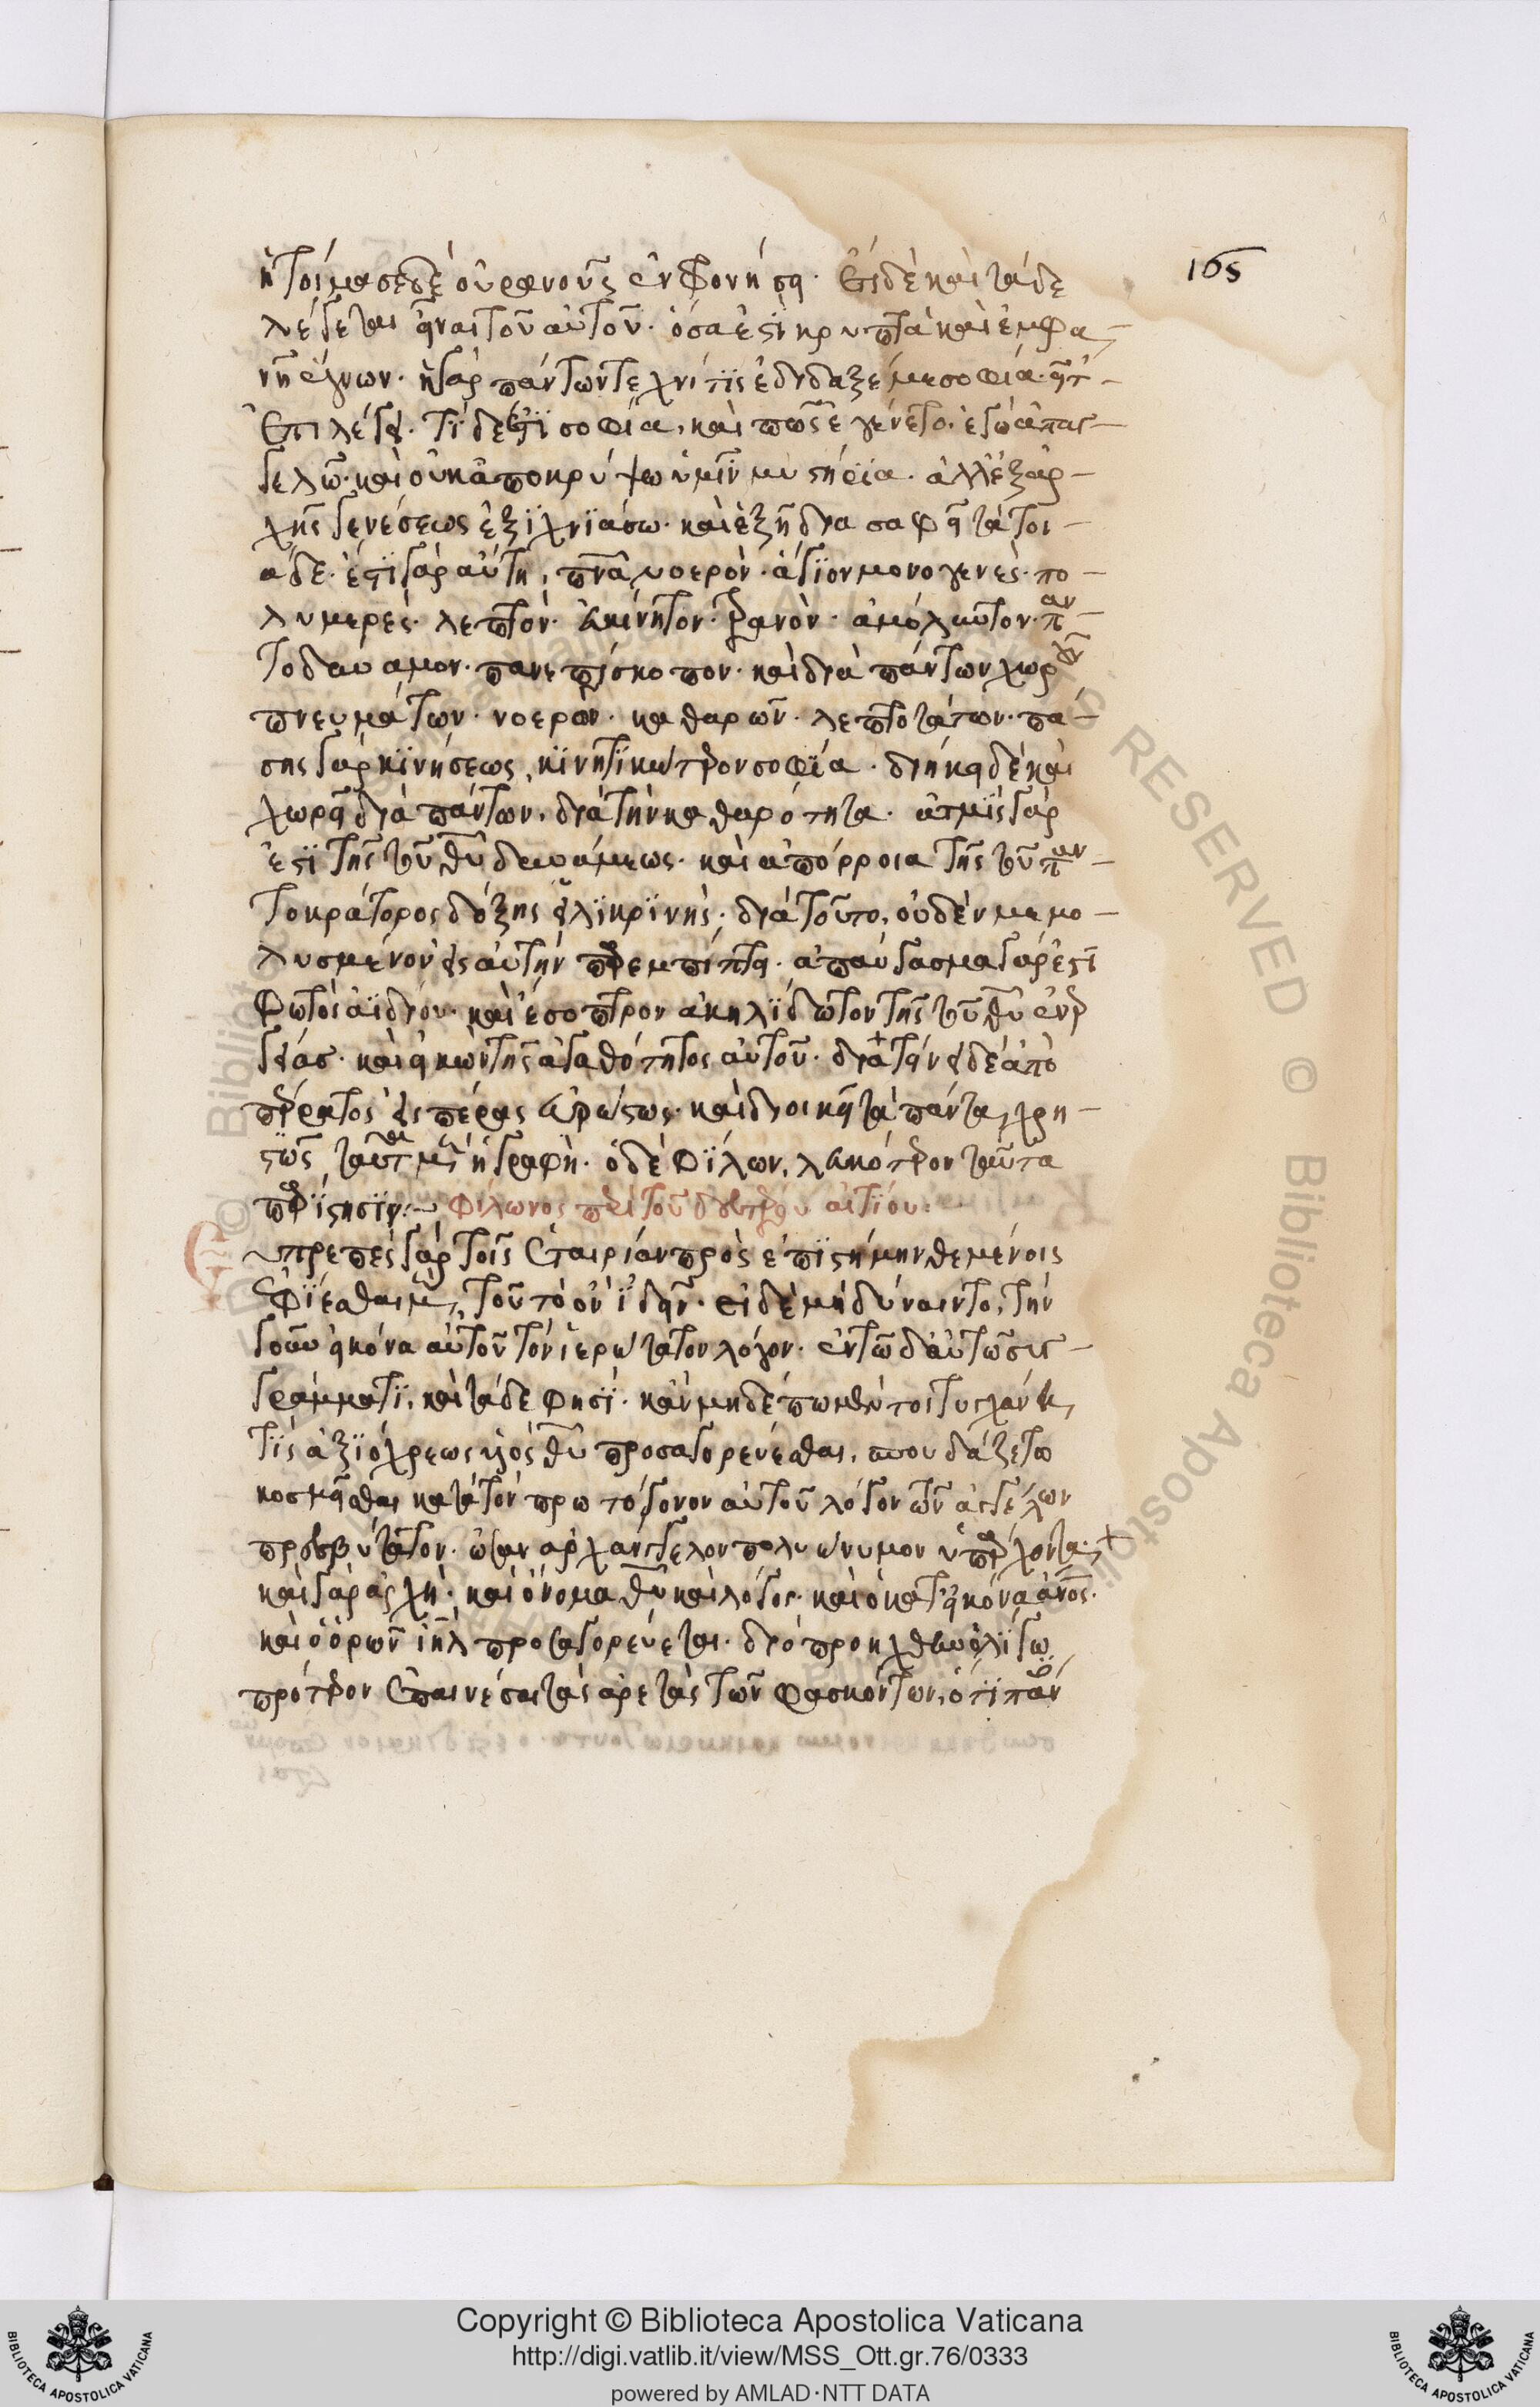 165
ἡτοίμασε δὲ οὐρανοὺς ἐν φρονήσει· ἔτι δὲ καὶ τάδε
λέγεται εἶναι τοῦ αὐτοῦ· ὅσα ἐστὶ κρυπτὰ καὶ ἐμφα-
νῆ ἔγνων· ἡ γὰρ πάντων τεχνίτις ἐδίδαξέ με σοφία· εἶτ᾽
ἐπιλέγει· τί δέ ἐστι σοφία, καὶ πῶς ἐγένετο, ἐγὼ ἀπαγ-
γελῶ· καὶ οὐκ ἀποκρύψω ὑμῖν μυστήρια· ἀλλ᾽ ἐξ ἀρ-
χῆς γενέσεως ἐξιχνιάσω· καὶ ἑξῆς διασαφεῖ τὰ τοι-
άδε· ἔστι γὰρ αὕτη, πνα νοερὸν· ἅγιον μονογενὲς· πο-
λυμερὲς· λεπτὸν· εὐκίνητον· τρανὸν· ἀμόλυντον· παν-
τοδύναμον· πανεπίσκοπον· καὶ διὰ πάντων χωροῦν
πνευμάτων· νοερῶν· καθαρῶν· λεπτοτάτων· πά-
σης γὰρ κινήσεως, κινητικώτερον σοφία· διήκει δὲ καὶ
χωρεῖ διὰ πάντων, διὰ τὴν καθαρότητα· ἀτμὶς γάρ
ἐστι τῆς τοῦ θυ δυνάμεως· καὶ ἀπόρροια τῆς τοῦ παν-
τοκράτορος δόξης εἰλικρινής· διὰ τοῦτο, οὐδὲν μεμο-
λυσμένον εἰς αὐτὴν παρεμπίπτει· ἀπαύγασμα γάρ ἐστι
φωτὸς ἀϊδίου· καὶ ἔσοπτρον ἀκηλίδωτον τῆς τοῦ θυ ἐνερ
γείας· καὶ εἰκὼν τῆς ἀγαθότητος αὐτοῦ· διατείνει δὲ ἀπὸ
πέρατος εἰς πέρας εὐρώστως· καὶ διοικεῖ τὰ πάντα, χρη-
στῶς ταῦτα μὲν ἡ γραφή· ὁ δὲ Φίλων, λευκότερον ταῦτα
παρίστησιν:— Φίλωνος περὶ τοῦ δευτέρου αἰτίου:
Εὐπρεπὲς γὰρ τοῖς ἑταιρίαν πρὸς ἐπιστήμην θεμένοις
ἐφίεσθαι μὲν, τοῦ τὸ ὂν ἰδεῖν· εἰ δὲ μὴ δύναιντο, τὴν
γοῦν εἰκόνα αὐτοῦ τὸν ἱερώτατον λόγον· ἐν τῶ δ᾽ αὐτῶ συγ-
γράμματι, καὶ τάδε φησί· κἂν μηδέπω μέντοι τυγχάνη,
τὶς ἀξιόχρεως υἱὸς θυ προσαγορεύεσθαι, σπουδαζέτω
κοσμεῖσθαι κατὰ τὸν πρωτόγονον αὐτοῦ λόγον τῶν ἀγγέλων
πρεσβύτατον· ὡσὰν ἀρχάγγελον πολυώνυμον ὑπάρχοντα·
καὶ γὰρ ἀρχὴ· καὶ ὄνομα θυ καὶ λόγος· καὶ ὁ κατ᾽ εἰκόνα ἄνος·
καὶ ὁ ὁρῶν ιηλ προσαγορεύεται· διὸ προήχθην ὀλίγω
πρότερον ἐπαινέσαι τὰς ἀρετὰς τῶν φασκόντων, ὅτι πάν
Copyright © Biblioteca Apostolica Vaticana
http://digi.vatlib.it/view/MSS_Ott.gr.76/0333
powered by AMLAD·NTT DATA
BIBLIOTECA APOSTOLICA VATICANA
BIBLIOTECA APOSTOLICA VATICANA